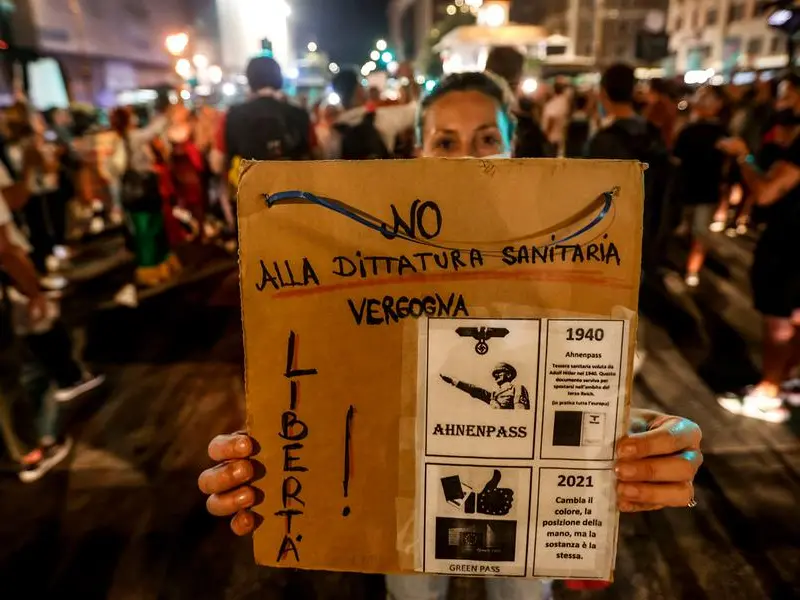 NO
ALLA DITTATURA SANITARIA
VERGOGNA
LIBERTÀ!
AHNENPASS
1940
Ahnenpass
Tessera sanitaria voluta da
Adolf Hitler nel 1940. Questo
documento serviva per
spostarsi nell'ambito del
terzo Reich.
(in pratica tutta l'europa)
GREEN PASS
2021
Cambia il
colore, la
posizione della
mano, ma la
sostanza è la
stessa.